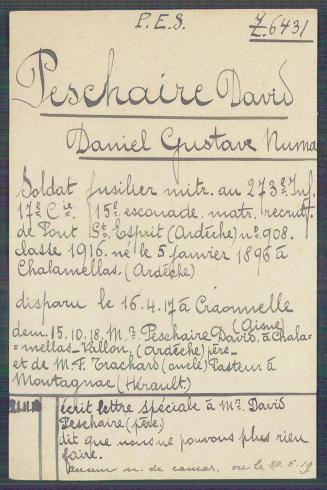 P.E.S.
Z.6431
Peschaire David
Daniel Gustave Numa
Soldat fusilier mitr. au 273e r. Inf.
17e Cie. 15e escouade. matr. recruti.
de Pont St. Esprit (Ardèche) no 908.
classe 1916. né le 5 janvier 1896 à
Chalamellas. (Ardèche)
disparu le 16.4.17 à Craonnelle
(Aisne)
dem. 15.10.18. Mr. Peschaire David. à Chala=
=mellas-Vallon, (Ardèche) père_
et de M. F. Trachard (oncle) Pasteur à
Montagnac (Hérault.)
21.11.18 écrit lettre spéciale à Mr. David
Peschaire (père.)
dit que nous ne pouvons plus rien
faire.
aucun n. de camar. vu le 30.5.19